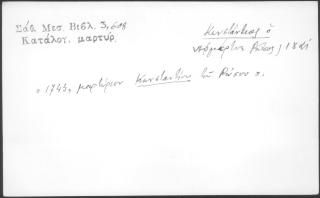 Σάθ. Μεσ. Βιβλ. 3, 608
Κατάλογ. μαρτύρ.
Κωνστάντιος ὁ
νεομάρτυς Ρῶσος, 1841
ο 1743, μαρτύριον Κωνσταντίνου τοῦ Ρώσου